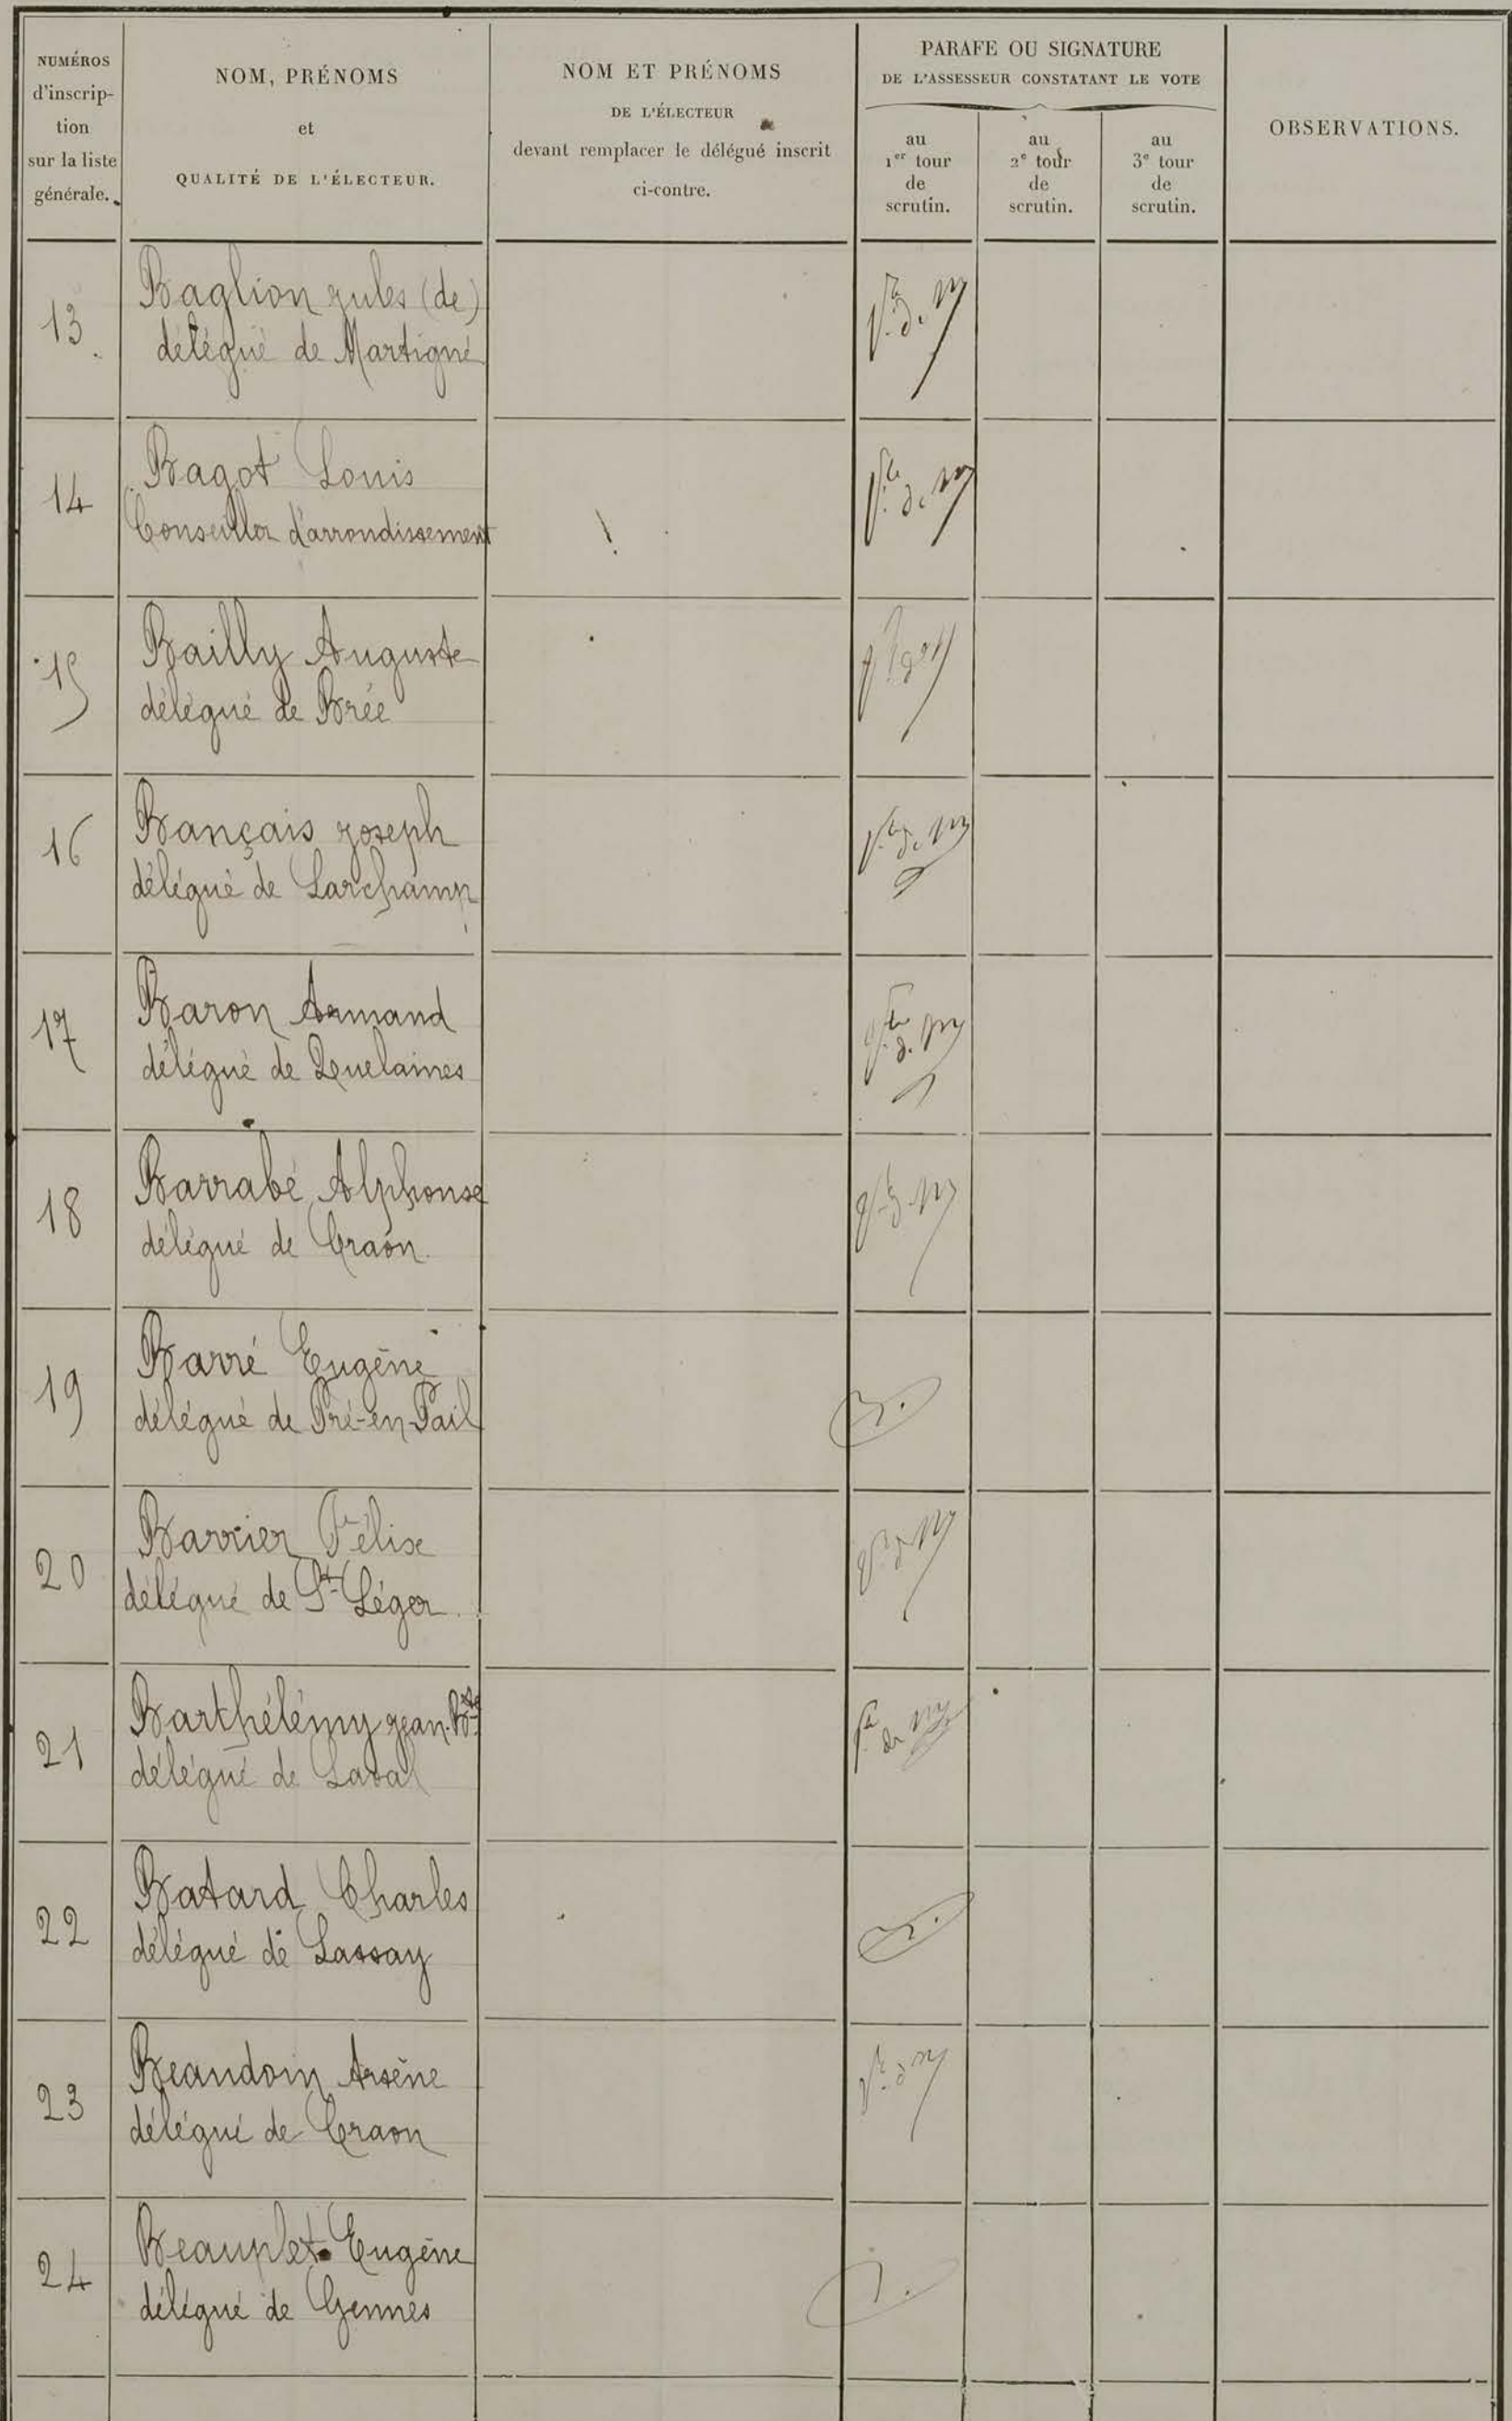 NUMÉROS
d'inscrip-
tion
sur la liste
générale.
NOM, PRÉNOMS
et
QUALITÉ DE L'ÉLECTEUR.
NOM ET PRÉNOMS
DE L'ÉLECTEUR
devant remplacer le délégué inscrit
ci-contre.
PARAFE OU SIGNATURE
DE L'ASSESSEUR CONSTATANT LE VOTE
au
1er tour
de
scrutin.
au
2e tour
de
scrutin.
au
3e tour
de
scrutin.
OBSERVATIONS.
13
Baglion jules (de)
délégué de Martigné
14
Bagot Louis
Conseiller d'arrondissement
15
Bailly Auguste
délégué de Brée
16
Bançais joseph
délégué de Larchamp
17
Baron Armand
délégué de Quelaines
18
Barrabé Alphonse
délégué de Craon.
19
Barré Eugène
délégué de Pré-en-Pail
20
Barrier Félix
délégué de St Léger.
21
Barthélémy jean-Bte
délégué de Laval
22
Batard Charles
délégué de Lassay
23
Beaudoin Arsène
délégué de Craon
24
Beauplet Eugène
délégué de Gennes